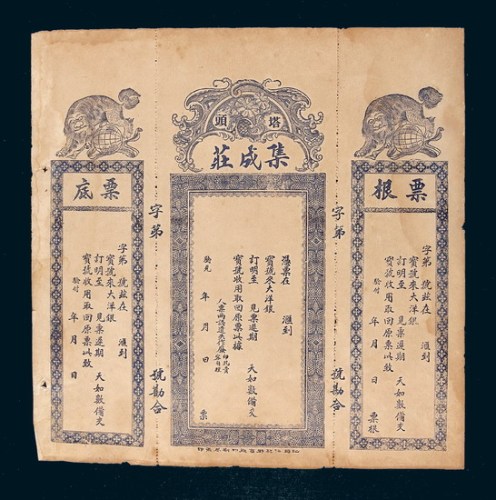 票根
字第 號茲在 滙到
寶號來大洋銀
訂明至 見票遲期 天如數備交
寶號收用取回原票此致
驗付 年 月 日 票根
字第 號勘合
塔頭
集成莊
憑票在 滙到
寶號來大洋銀
訂明至 見票遲期 天如數備交
寶號收用取回原票以據
驗兌 年 月 日 票
字第 號勘合
票底
字第 號茲在 滙到
寶號來大洋銀
訂明至 見票遲期 天如數備交
寶號收用取回原票此致
驗付 年 月 日